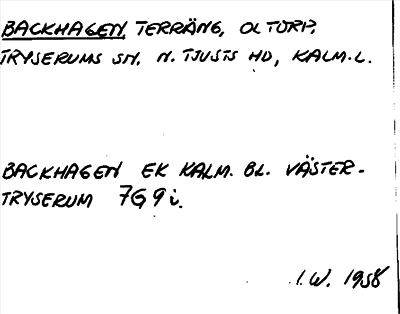 BACKHAGEN, TERRÄNG, OLTORP,
TRYSERUMS SN. N. TJUSTS HD, KALM. L.
BACKHAGEN EK KALM. BL. VÄSTER-
TRYSERUM 7G9i.
I.W. 1958